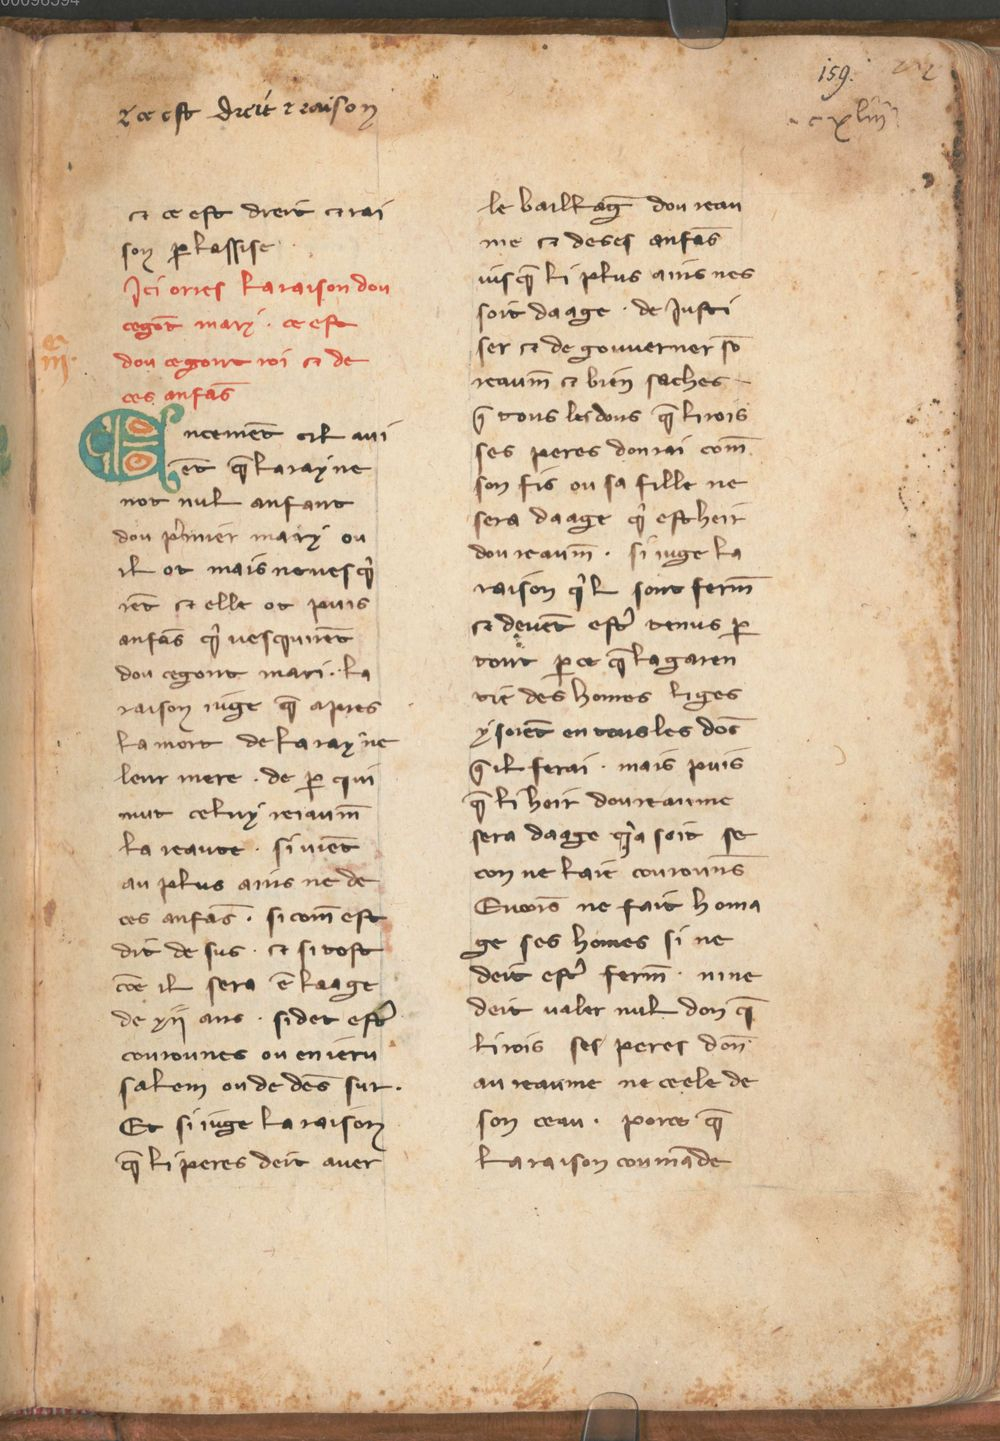 00096394
159.
cxliiij
⁊ ce est dreit ⁊ raison
et ce est dreit et rai
son ꝑ lassise
Ici orres la raison dou
cegōt mary · ce est
dou cegont roi et de
ces anfās
iij
Encemēt cil aui
ēt q̄ la rayne
not nul anfant
dou pͥmier mary ou
il ot mais ne vesqͥ
rēt et elle ot puis
anfās qͥ vesquirēt
dou cegont mari · la
raison iuge q̄ apres
la mort de la rayne
leur mere · de ꝑ qui
mut celuy reiaum̄
la reaute · si viēt
au plus ains ne de
ces anfās · si com̄ est
dit de sus · et si tost
cōe il sera ē laage
de xij ans · si det estͬ
courounes ou en ieru
salem ou de dēs sur ·
Et si iuge la raison
q̄ li peres deit auer
le baillaḡ dou reau
me et de ses anfās
iusq̄ li plus ains nes
soit daage · de Iusti
ser et de gouuerner sō
reaum̄ et bien saches
q̄ tous les dons q̄ li rois
ses peres donrai com̄
son fis ou sa fille ne
sera daage qͥ est heir
dou reaum̄ · si iuge la
raison qͥl sont ferm̄
et deuēt estͬ tenus ꝑ
tout ꝑ ce q̄ la garen
tie des homes liges
y soiēt en tous les dōs
q̄ il ferai · mais puis
q̄ li heir dou reaume
sera daage qͥa soit se
con ne laie courounes
Encores ne fait homa
ge ses homes si ne
deit estͬ ferm̄ · nine
deit valer nul don q̄
li rois ses peres don̄
au reaume ne cele de
son ceau · porce q̄
la raison coumāde